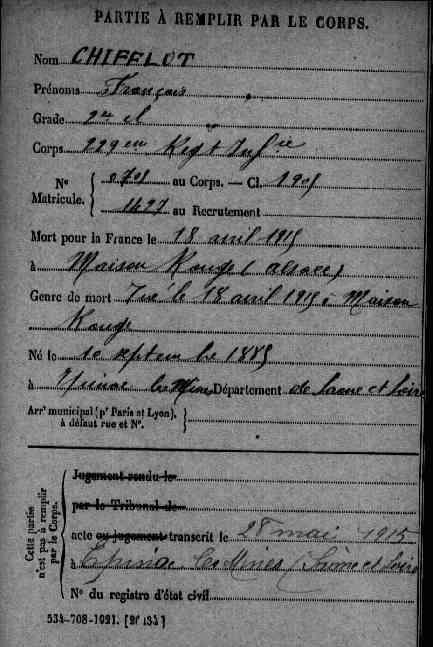 PARTIE À REMPLIR PAR LE CORPS.
Nom CHIFFLOT
Prénoms François
Grade 2me cl
Corps 229em Regt Infie
N° Matricule. au Corps. — Cl. 1905
1427 au Recrutement
Mort pour la France le 18 avril 1915
à Maison Rouge (alsace)
Genre de mort Tué le 18 avril 1915 à Maison
Rouge
Né le 10 septembre 1885
à Epinac les Mines Département de Saone et Loire
Arrt municipal (pr Paris et Lyon),
à défaut rue et N°.
Cette partie
n'est pas à remplir
par le Corps.
Jugement rendu le
par le Tribunal de
acte ou jugement transcrit le 28 mai 1915
à Epinac les Mines (Saône et Loire
N° du registre d'état civil
534-708-1921. [26434]